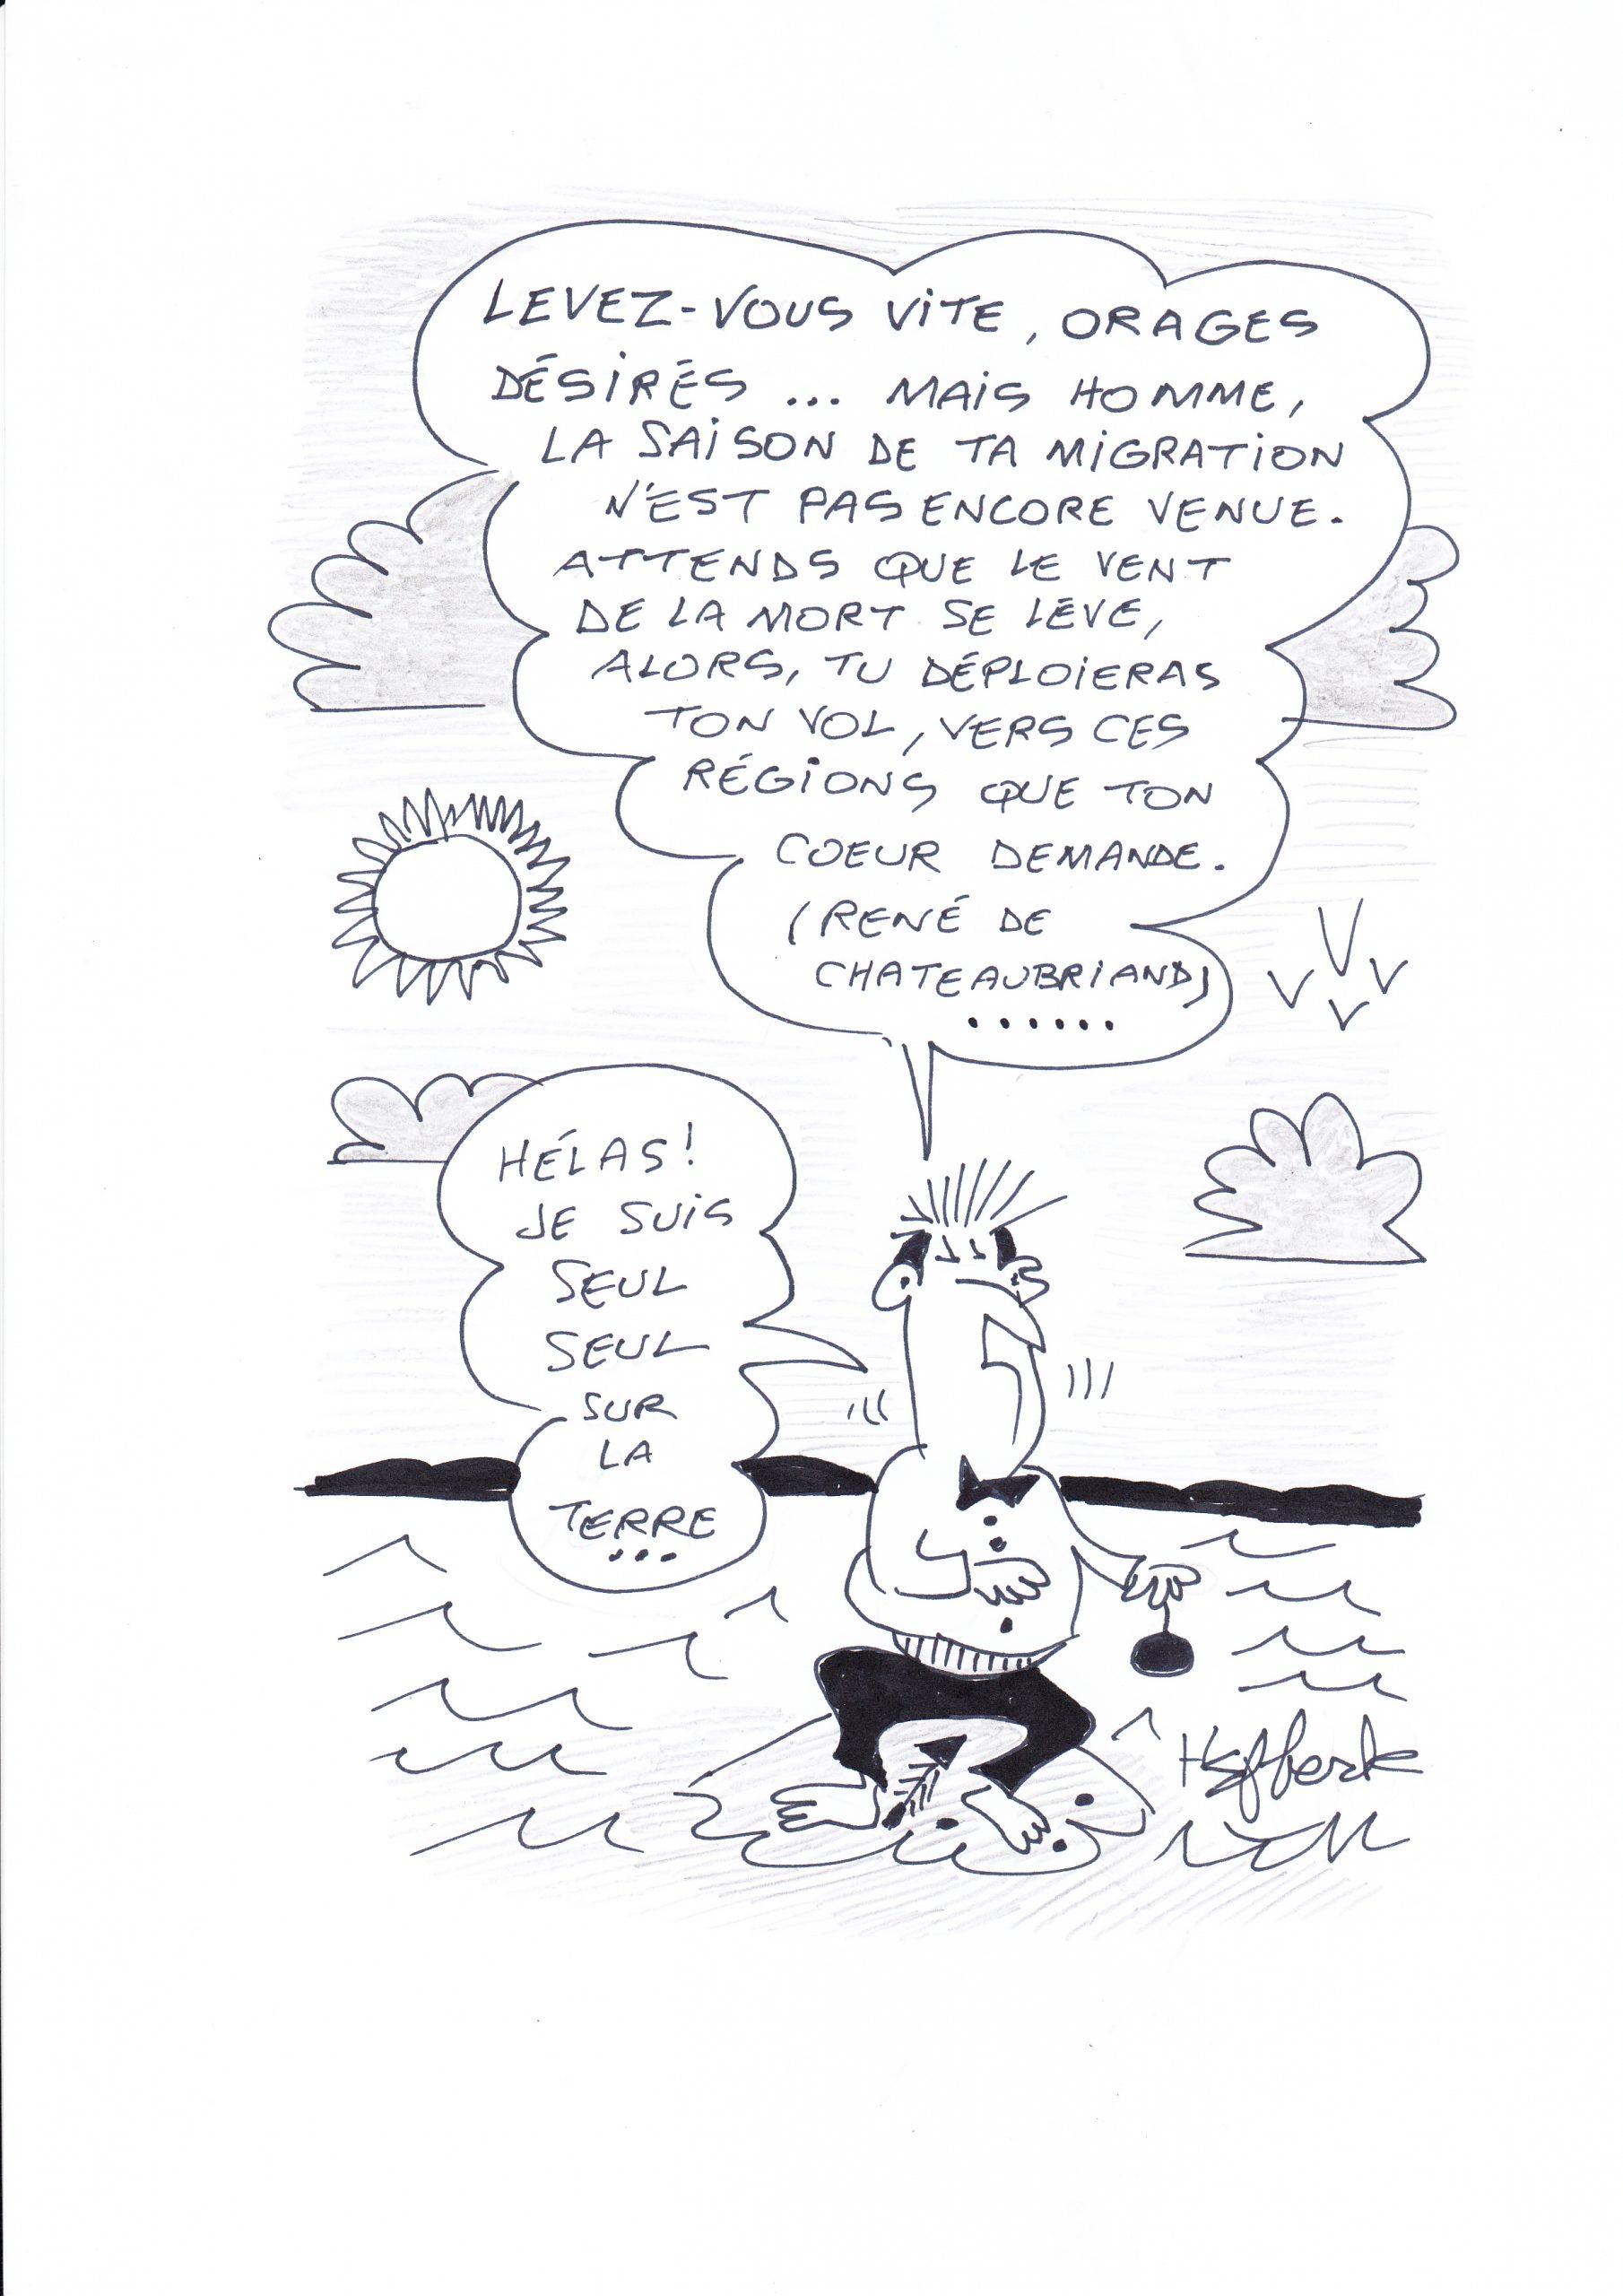 LEVEZ-VOUS VITE, ORAGES
DÉSIRÉS ... MAIS HOMME,
LA SAISON DE TA MIGRATION
N'EST PAS ENCORE VENUE.
ATTENDS QUE LE VENT
DE LA MORT SE LÈVE,
ALORS, TU DÉPLOIERAS
TON VOL, VERS CES
RÉGIONS QUE TON
COEUR DEMANDE.
(RENÉ DE
CHATEAUBRIAND)
......
HÉLAS!
JE SUIS
SEUL
SEUL
SUR
LA
TERRE
...